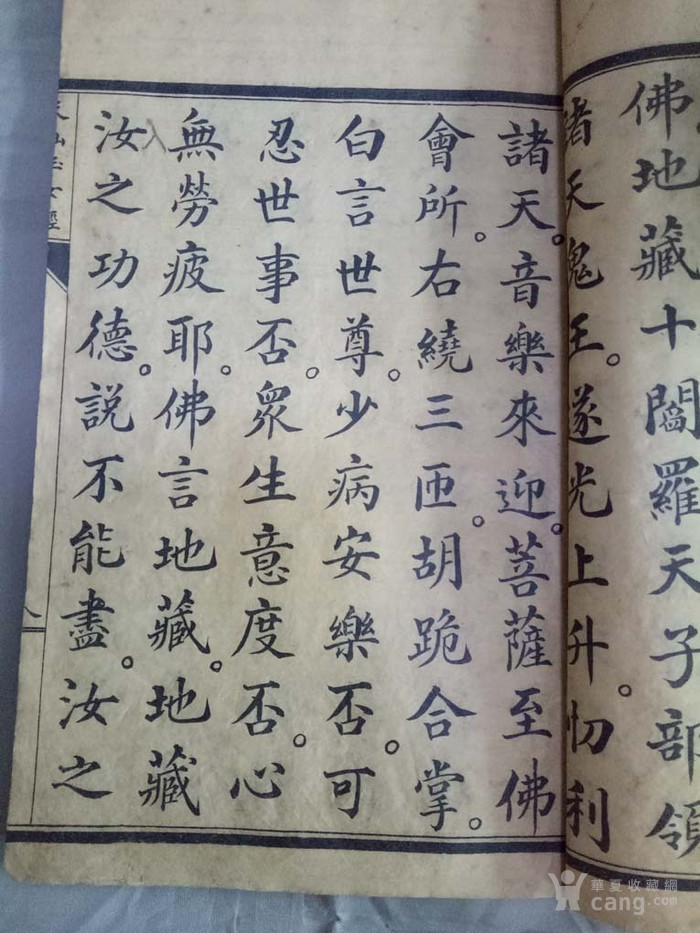 佛地藏十閻羅天子部領
諸天鬼王。遂光上升。忉利
諸天。音樂來迎。菩薩至佛
會所。右繞三匝。胡跪合掌。
白言世尊。少病安樂否。可
忍世事否。衆生意度否。心
無勞疲耶。佛言地藏。地藏
汝之功德。説不能盡。汝之
華夏收藏網
cang.com